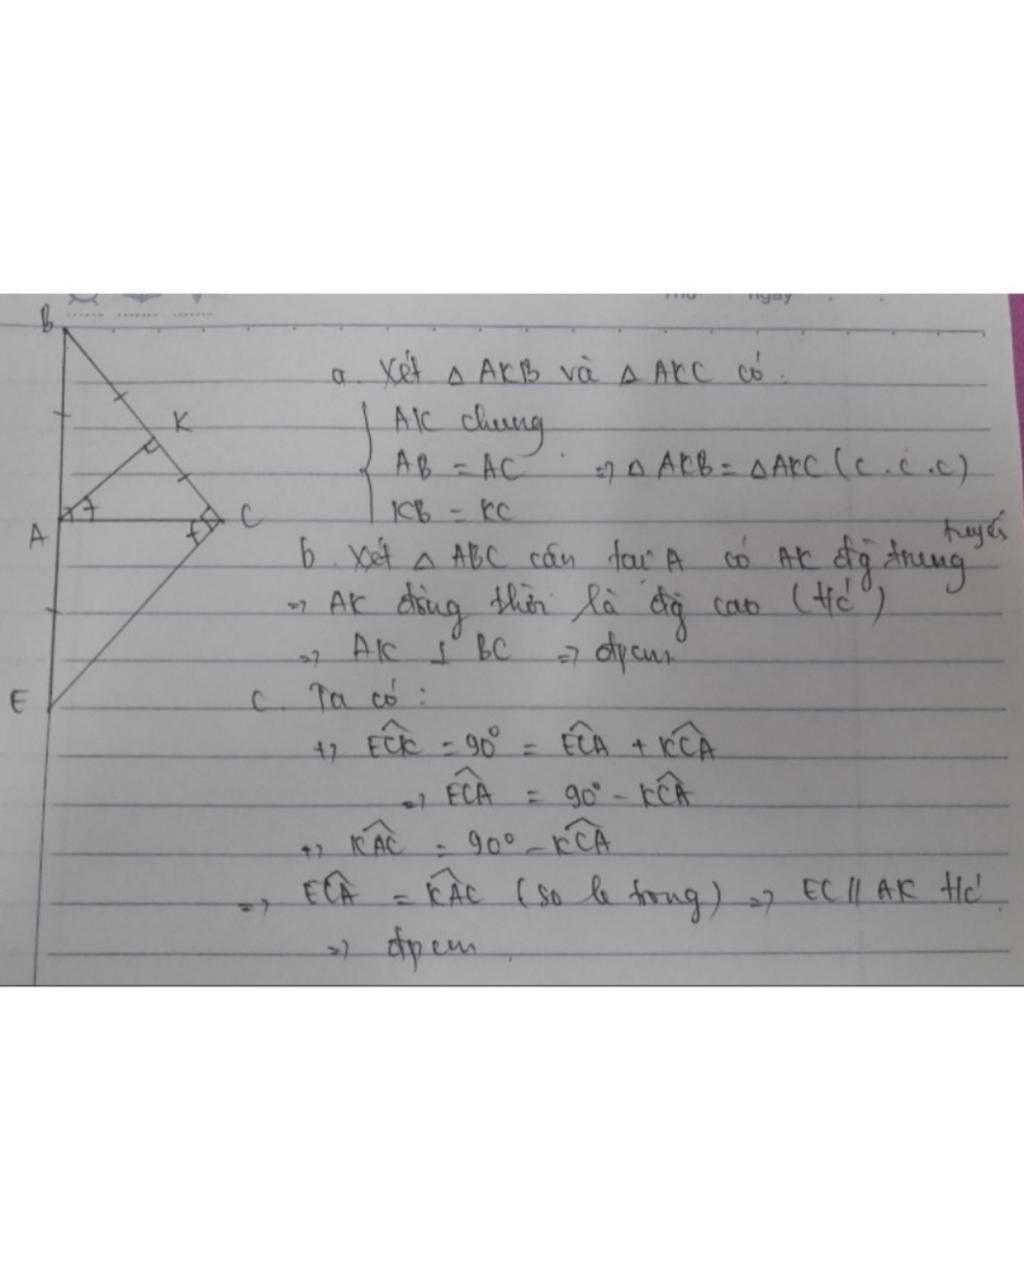 Thứ ngày
B
K
A
C
E
a. Xét △ AKB và △ AKC có:
AK chung
AB = AC => △ AKB = △ AKC (c.c.c)
KB = KC
b. Xét △ ABC cân tại A có AK đg trung tuyến
=> AK đồng thời là đg cao (t/c)
=> AK ⊥ BC => đpcm
c. Ta có:
+) ECK^ = 90° = ECA^ + KCA^
=> ECA^ = 90° - KCA^
+) KAC^ = 90° - KCA^
=> ECA^ = KAC^ (so le trong) => EC // AK t/c
=> đpcm.